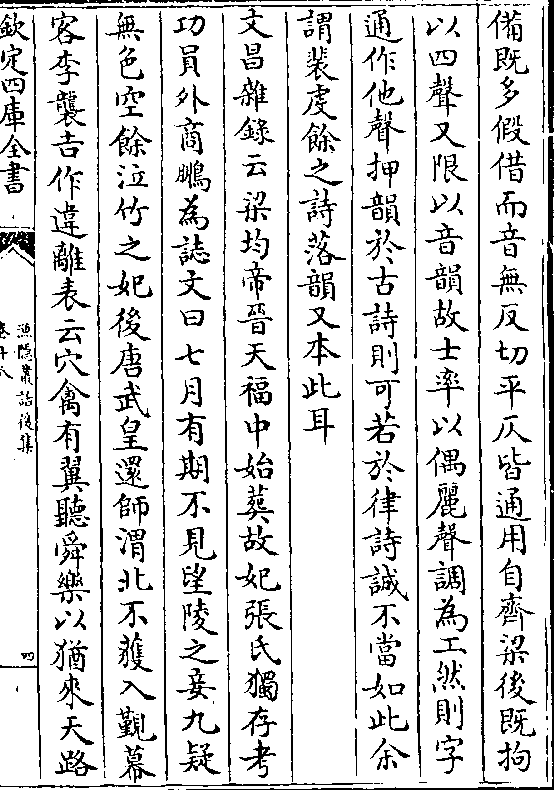 備既多假借而音無反切平仄皆通用自齊梁後既拘
以四聲又限以音韻故士率以偶麗聲調為工然則字
通作他聲押韻於古詩則可若於律詩誠不當如此余
謂裴虔餘之詩落韻又本此耳
文昌雜錄云梁均帝晉天福中始葬故妃張氏獨存考
功員外商鵬為誌文曰七月有期不見望陵之妾九疑
無色空餘泣竹之妃後唐武皇還師渭北不獲入覲幕
客李襲吉作違離表云穴禽有翼聽舜樂以猶來天路
欽定四庫全書
漁隱叢話後集
卷十八
四